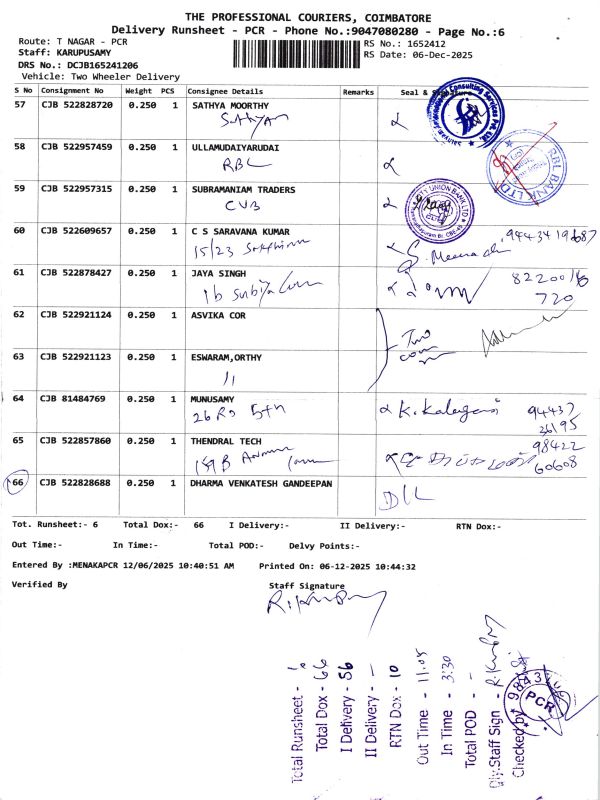 THE PROFESSIONAL COURIERS, COIMBATORE
Delivery Runsheet - PCR - Phone No.:9047080280 - Page No.:6
Route: T NAGAR - PCR
RS No.: 1652412
Staff: KARUPUSAMY
RS Date: 06-Dec-2025
DRS No.: DCJB165241206
Vehicle: Two Wheeler Delivery
S No Consignment No Weight PCS Consignee Details Remarks Seal & Signature
57 CJB 522828720 0.250 1 SATHYA MOORTHY
Sathyan
58 CJB 522957459 0.250 1 ULLAMUDAIYARUDAI
RBL
RBL BANK LTD
59 CJB 522957315 0.250 1 SUBRAMANIAM TRADERS
CUB
CITY UNION BANK LTD
60 CJB 522609657 0.250 1 C S SARAVANA KUMAR
15/23
61 CJB 522878427 0.250 1 JAYA SINGH
16
720
62 CJB 522921124 0.250 1 ASVIKA COR
Two
63 CJB 522921123 0.250 1 ESWARAM,ORTHY
11
64 CJB 81484769 0.250 1 MUNUSAMY
26 Rd 5th
K. Kalayani 94437
36195
65 CJB 522857860 0.250 1 THENDRAL TECH
98422
60608
66 CJB 522828688 0.250 1 DHARMA VENKATESH GANDEEPAN
D/L
Tot. Runsheet:- 6 Total Dox:- 66 I Delivery:- II Delivery:- RTN Dox:-
Out Time:- In Time:- Total POD:- Delvy Points:-
Entered By :MENAKAPCR 12/06/2025 10:40:51 AM Printed On: 06-12-2025 10:44:32
Verified By Staff Signature
Total Runsheet - 6
Total Dox - 66
I Delivery - 56
II Delivery - -
RTN Dox - 10
Out Time - 11.05
In Time - 3:30
Total POD - -
Dly.Staff Sign -
Checked by
PCR